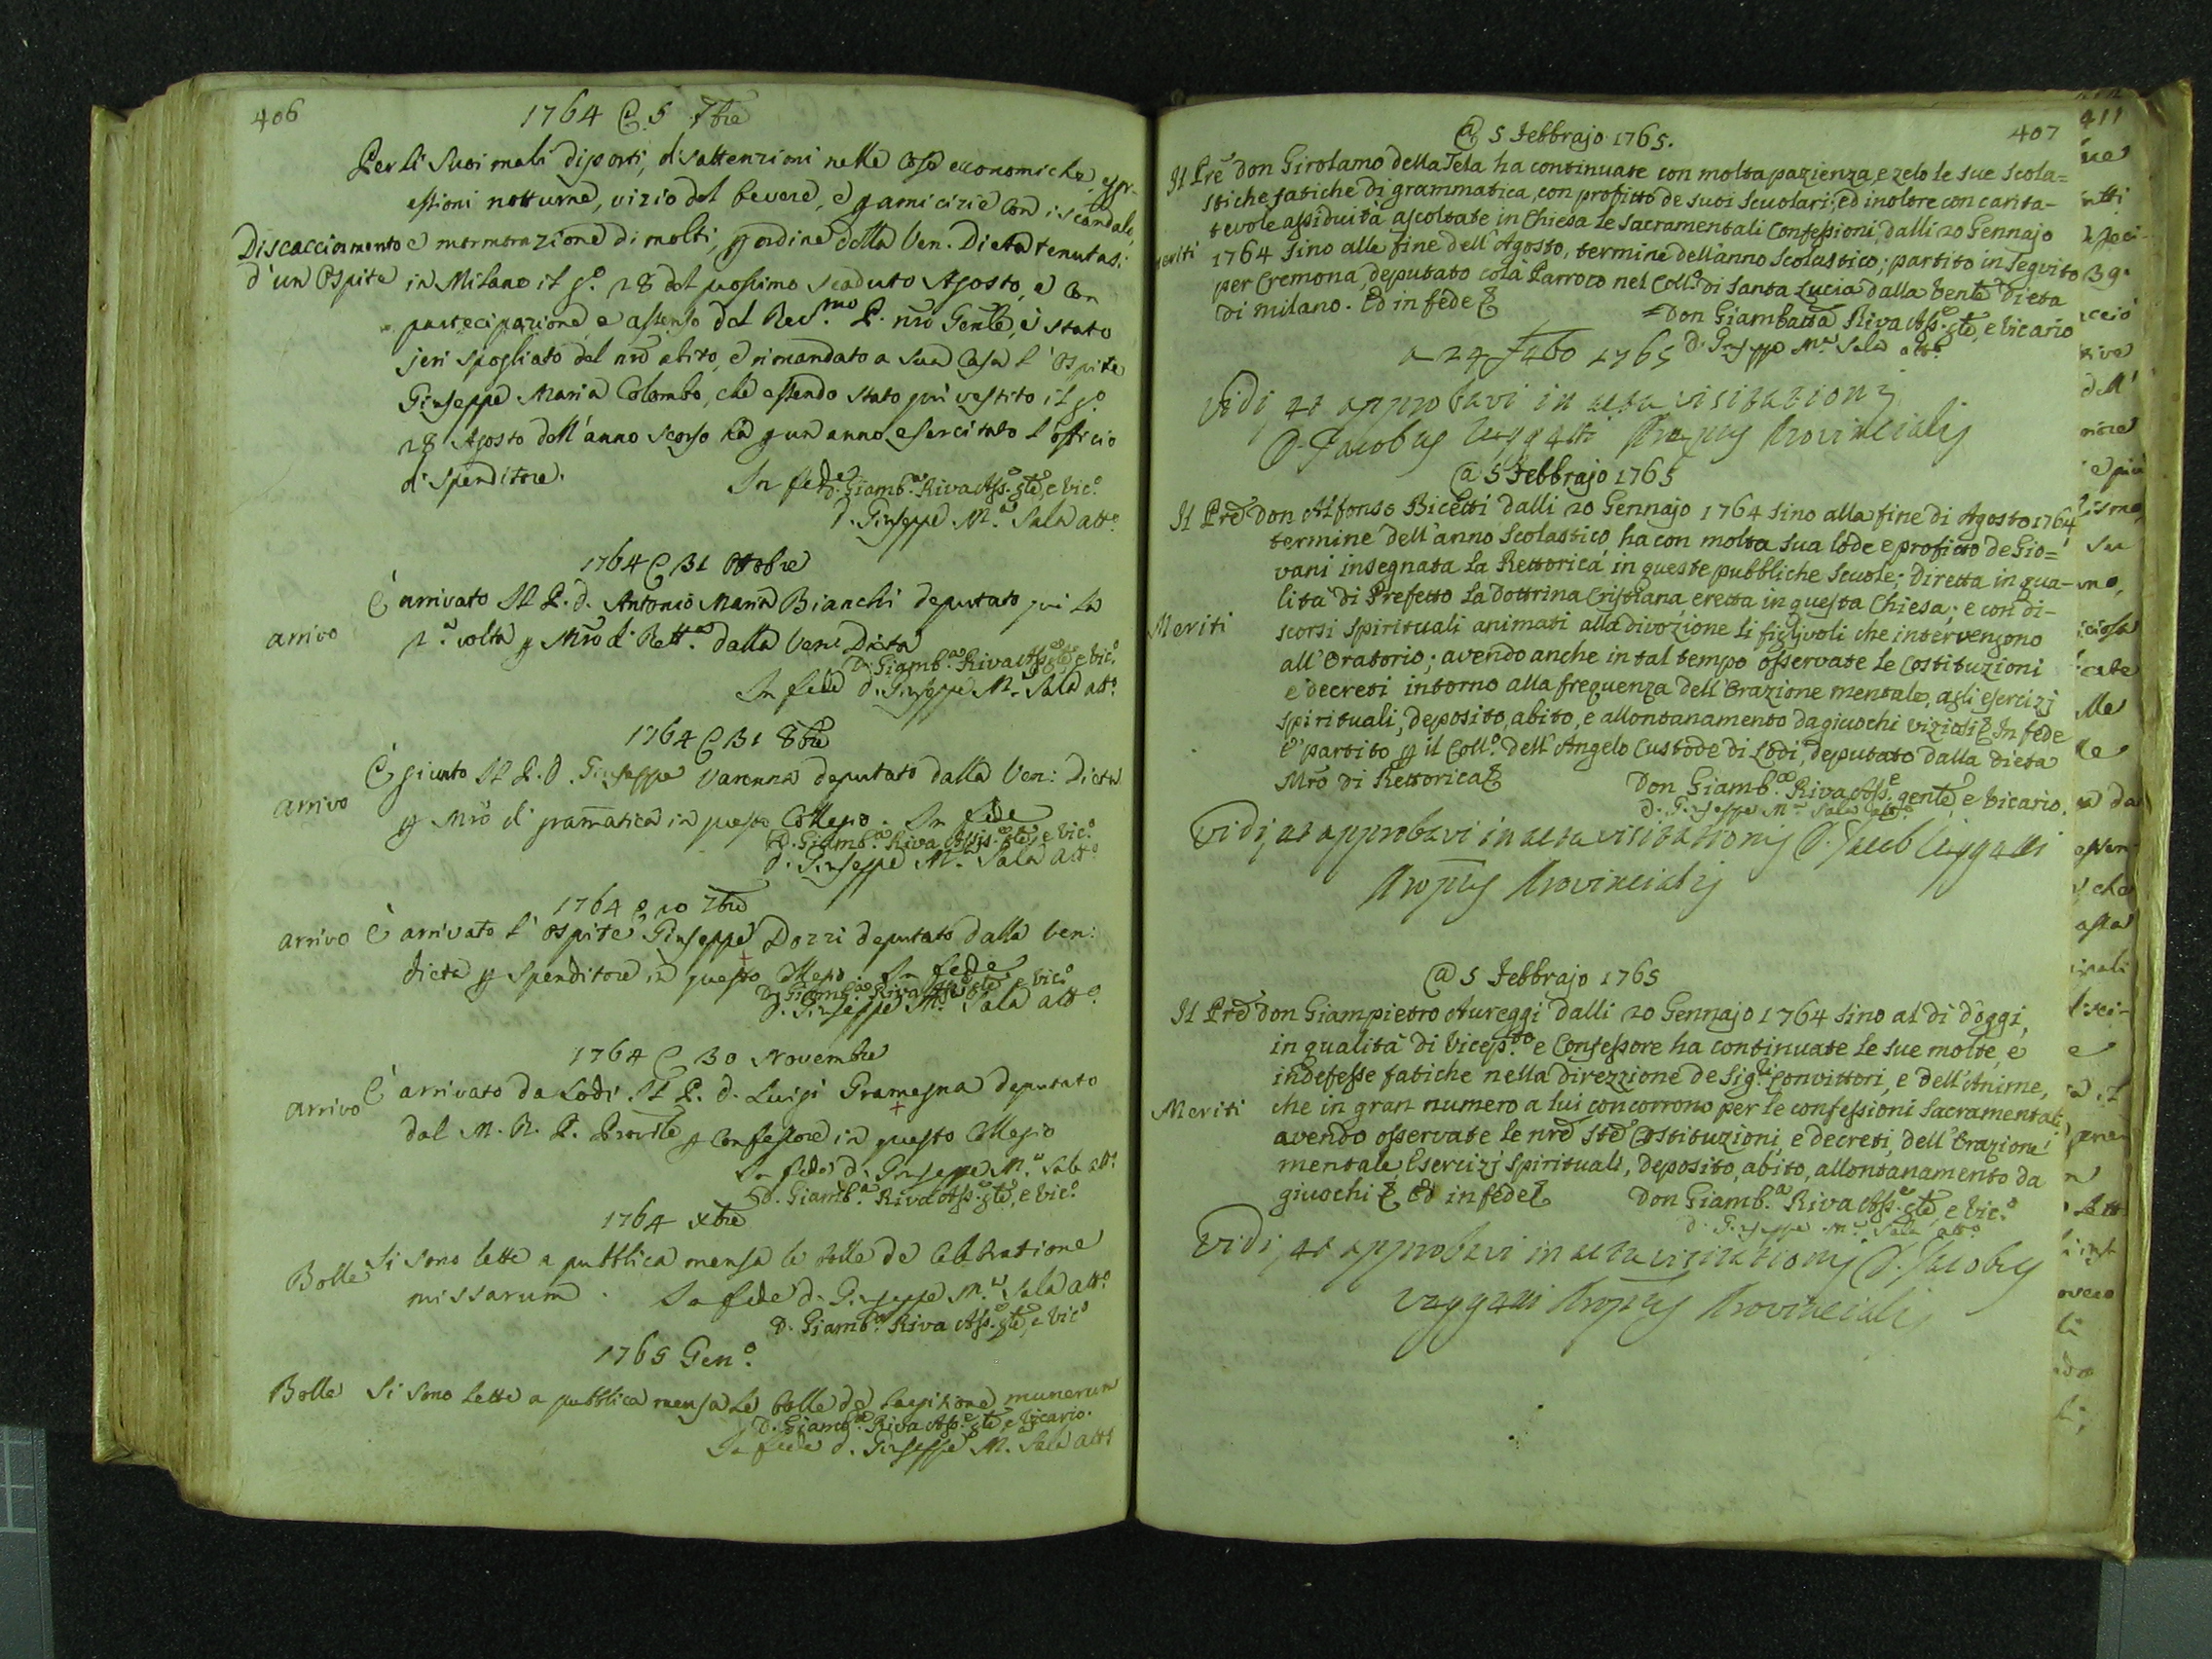 406
1764 @ 5 7bre
Per li suoi mali diporti, disattenzioni nelle cose economiche, egr-
essioni notturne, vizio del bevere, e p amicizie con iscandalo,
Discacciamento e mormorazione di molti, p ordine della Ven. Dieta tenutasi
d'un Ospite in Milano il g.o 28 del prossimo scaduto Agosto, e con
partecipazione, e assenso del Rev.mo P. nro Gen̄le, è stato
jeri spogliato del nrō abito, e rimandato a sua Casa l'Ospite
Giuseppe Maria Colombo, che essendo stato qui vestito il g.o
28 Agosto dell'anno scorso ha p un anno esercitato l'officio
di spenditore.
In fede D. Giamb.a Riva Ass.e gtē, e Vic.o
d. Giuseppe M.a Sala att.o
1764 @ 31 Ottobre
arrivo
È arrivato Il P. d. Antonio Maria Bianchi deputato qui la
2.a volta p Mrō di Rett.a dalla Ven: Dieta
D. Giamb.a Riva Ass.e gtē, e Vic.o
In fede d. Giuseppe M. Sala att.o
1764 @ 31 8bre
arrivo
È giunto Il P. D. Giuseppe Varenna deputato dalla Ven: Dieta
p Mrō di gram̄atica in questo Collegio. In fede
D. Giamb.a Riva Assis.e gtē, e Vic.o
d. Giuseppe M.a Sala att.o
1764 @ 10 7bre
arrivo È arrivato l'ospite Giuseppe Dozzi deputato dalla Ven:
dieta p spenditore in questo Collegio. In fede
D. Giamb.a Riva Ass.e gtē, e Vic.o
d. Giuseppe M.a Sala att.o
1764 @ 30 Novembre
arrivo È arrivato da Lodi Il P. d. Luigi Gramegna deputato
dal M. R. P. Provlē p Confessore in questo Collegio
In fede d. Giuseppe M.a Sala att.o
D. Giamb.a Riva Ass.e gtē, e Vic.o
1764 Xbre
Bolle Si sono lette a pubblica mensa le bolle de celebratione
missarum. In fede d. Giuseppe M.a Sala att.o
D. Giamb.a Riva Ass.e gtē, e Vic.o
1765 Gen.o
Bolle Si sono lette a pubblica mensa le bolle de largitione munerum
D. Giamb.a Riva Ass.e gtē, e Vicario.
In fede d. Giuseppe M.a Sala att.o
407
@ 5 Febbrajo 1765.
Il Prē don Girolamo della Tela ha continuate con molta pazienza, e zelo le sue scola=
stiche fatiche di grammatica, con profitto de suoi scuolari; ed inoltre con carita-
tevole assiduità ascoltate in Chiesa le Sacramentali Confessioni, dalli 20 Gennajo
1764 sino alle fine dell'Agosto, termine dell'anno Scolastico; partito in seguito
per Cremona, deputato colà Parroco nel Coll.o di Santa Lucia dalla Ventē Dieta
di milano. Ed in fede
Don Giambatta Riva Ass.e gtē, e Vicario
D. Giuseppe M.a Sala att.o
a 24 1765
Vidi, et approbavi in actu visitationis
D. Jacobus Veggetti Præpus Provincialis
@ 5 Febbrajo 1765
Il Prē don Alfonso Bicetti dalli 20 Gennajo 1764 sino alla fine di Agosto 1764
termine dell'anno Scolastico, ha con molta sua lode e profitto de Gio=
vani insegnata la Rettorica in queste pubbliche Scuole; diretta in qua-
lita di Prefetto la Dottrina Cristiana eretta in questa Chiesa; e con di-
Meriti
scorsi spirituali animati alla divozione li figlivoli che intervengono
all'Oratorio; avendo anche in tal tempo osservate le Costituzioni
e decreti intorno alla frequenza dell'Orazione mentale, agli esercizj
spirituali, deposito, abito, e allontanamento da giuochi viziosi In fede
È partito p il Coll.o dell'Angelo Custode di Lodi, deputato dalla dieta
Mrō di Rettorica
Don Giamb.a Riva Ass.e gentē, e Vicario.
D. Giuseppe M.a Sala att.o
Vidi, et approbavi in actu visitationis D. Jacob Veggetti
Propus Provincialis
@ 5 Febbrajo 1765
Il Prē don Giampietro Aureggi dalli 20 Gennajo 1764 sino al dì d'oggi,
in qualità di Vicep.to e Confessore ha continuate le sue molte, e
indefesse fatiche nella direzzione de Sig.li Convittori, e dell'Anime,
Meriti
che in gran numero a lui concorrono per le confessioni Sacramentali,
avendo osservate le nrē stē Costituzioni, e decreti, dell'Orazione
mentale, Esercizj spirituali, deposito, abito, allontanamento da
giuochi Ed in fede
Don Giamb.a Riva Ass.e gtē, e Vic.o
d. Giuseppe M.a Sala att.o
Vidi, et approbavi in actu visitationis D. Jacobus
Veggetti Propus Provincialis
411